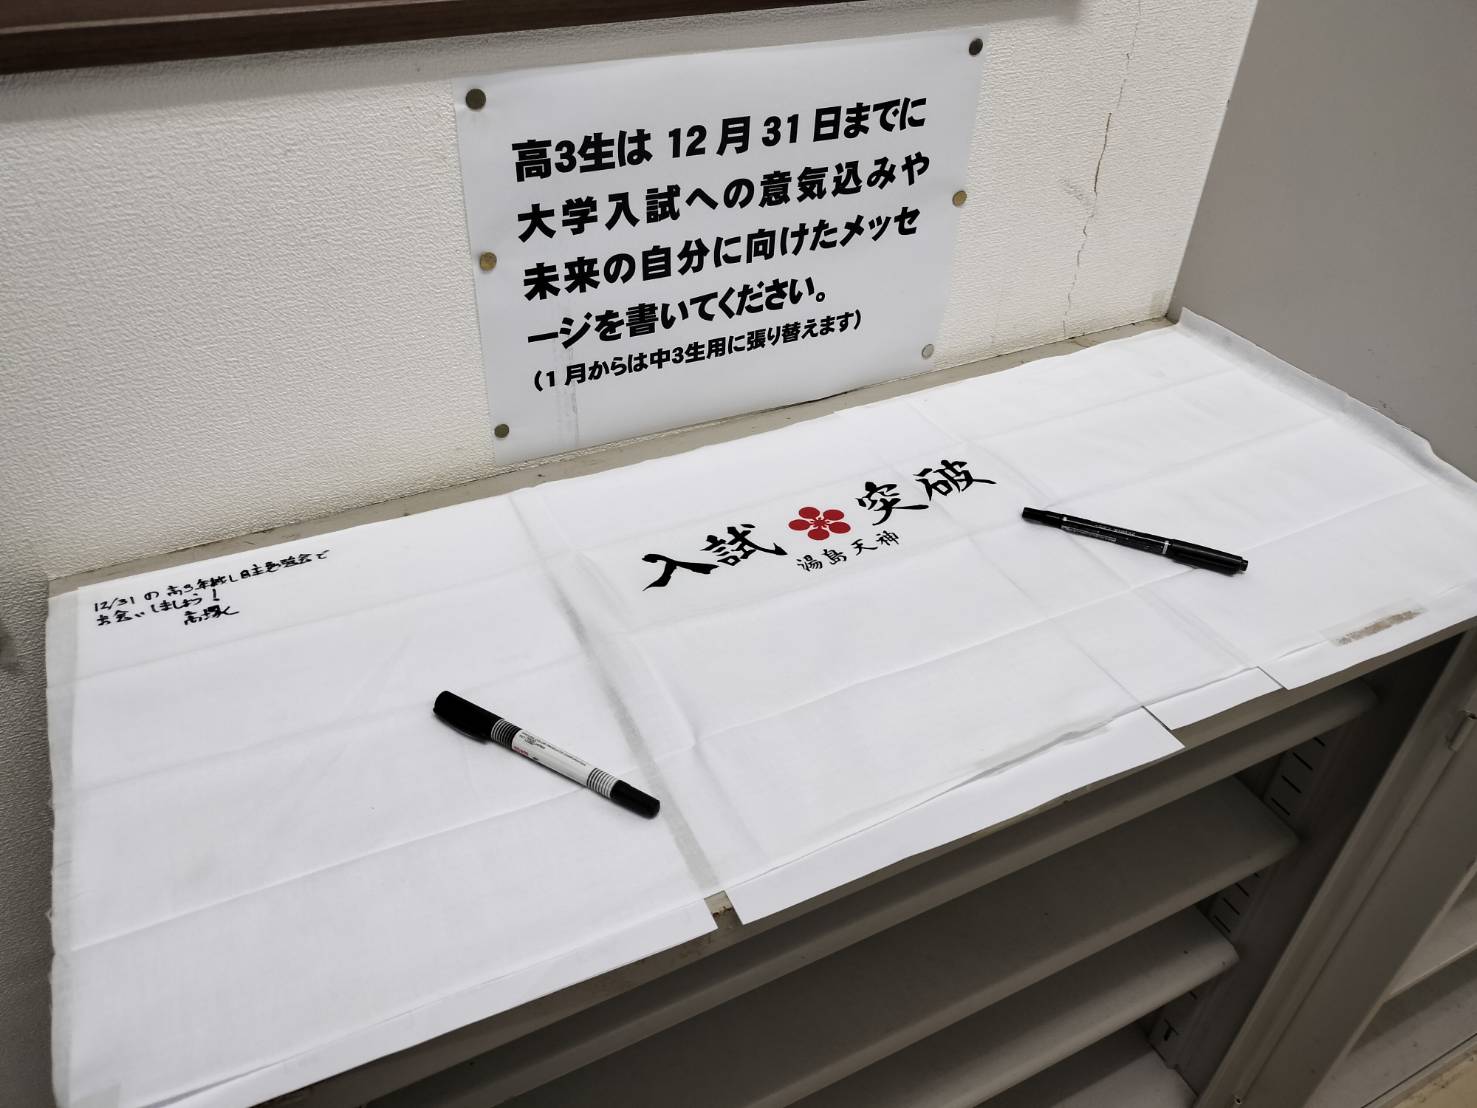 高3生は 12月31日までに
大学入試への意気込みや
未来の自分に向けたメッセ
ージを書いてください。
（1月からは中3生用に張り替えます）
入試 突破
湯島天神
12/31の高3年越し自主勉強会で
お会いしましょう！